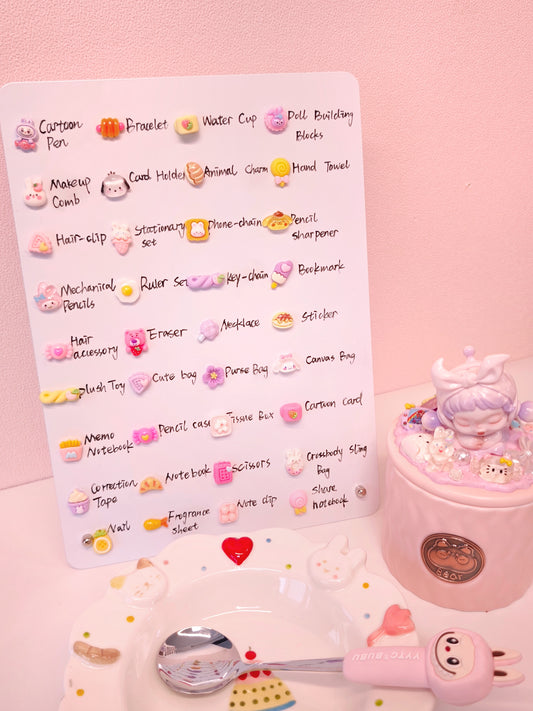 Cartoon Pen
Bracelet
Water Cup
Doll Building Blocks
Makeup Comb
Card Holder
Animal Charm
Hand Towel
Hair-clip
Stationary set
Phone-chain
Pencil sharpener
Mechanical Pencils
Ruler Set
Key-chain
Bookmark
Hair accessory
Eraser
Necklace
Sticker
Plush Toy
Cute bag
Purse Bag
Canvas Bag
Memo Notebook
Pencil case
Tissue Box
Cartoon Card
Correction Tape
Notebook
Scissors
Crossbody Sling Bag
Nail
Fragrance sheet
Note clip
Share notebook
Bear
YYTC*BUBU